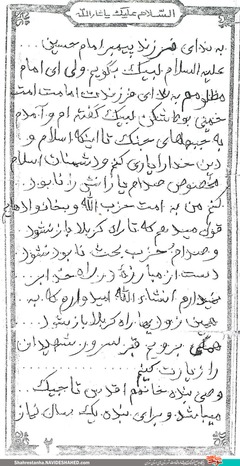 السلام علیک یا ثارالله
به ندای فرزند پیمبر امام حسین
علیه السلام لبیک بگویم ولی ای امام
مظلوم به ندای فرزندت امامت امت
خمینی بوطشکن لبیک گفته ام و آمدم
به جبهه های جنگ تا اینکه اسلام و
دین خدا را یاری کنم و دشمنان اسلام
مخصوص صدام یارانش را نابود
کنم من به امت حزب الله و خانواده ام
قول میدهم که تا راه کربلا باز شود
و صدام و حزب بعث نابود شود
دست از مبارزه در راه خدا بر
نمیدارم انشاء الله امیدوارم که به
همین زودیها راه کربلا باز شود
همگی برویم قبر سرور شهیدان
را زیارت کنیم
وصی بنده خانمم اقدس تاجیک
میباشد و برای بنده یک سال نماز
۲
Shahreetanha.NAVIDESHAHED.com